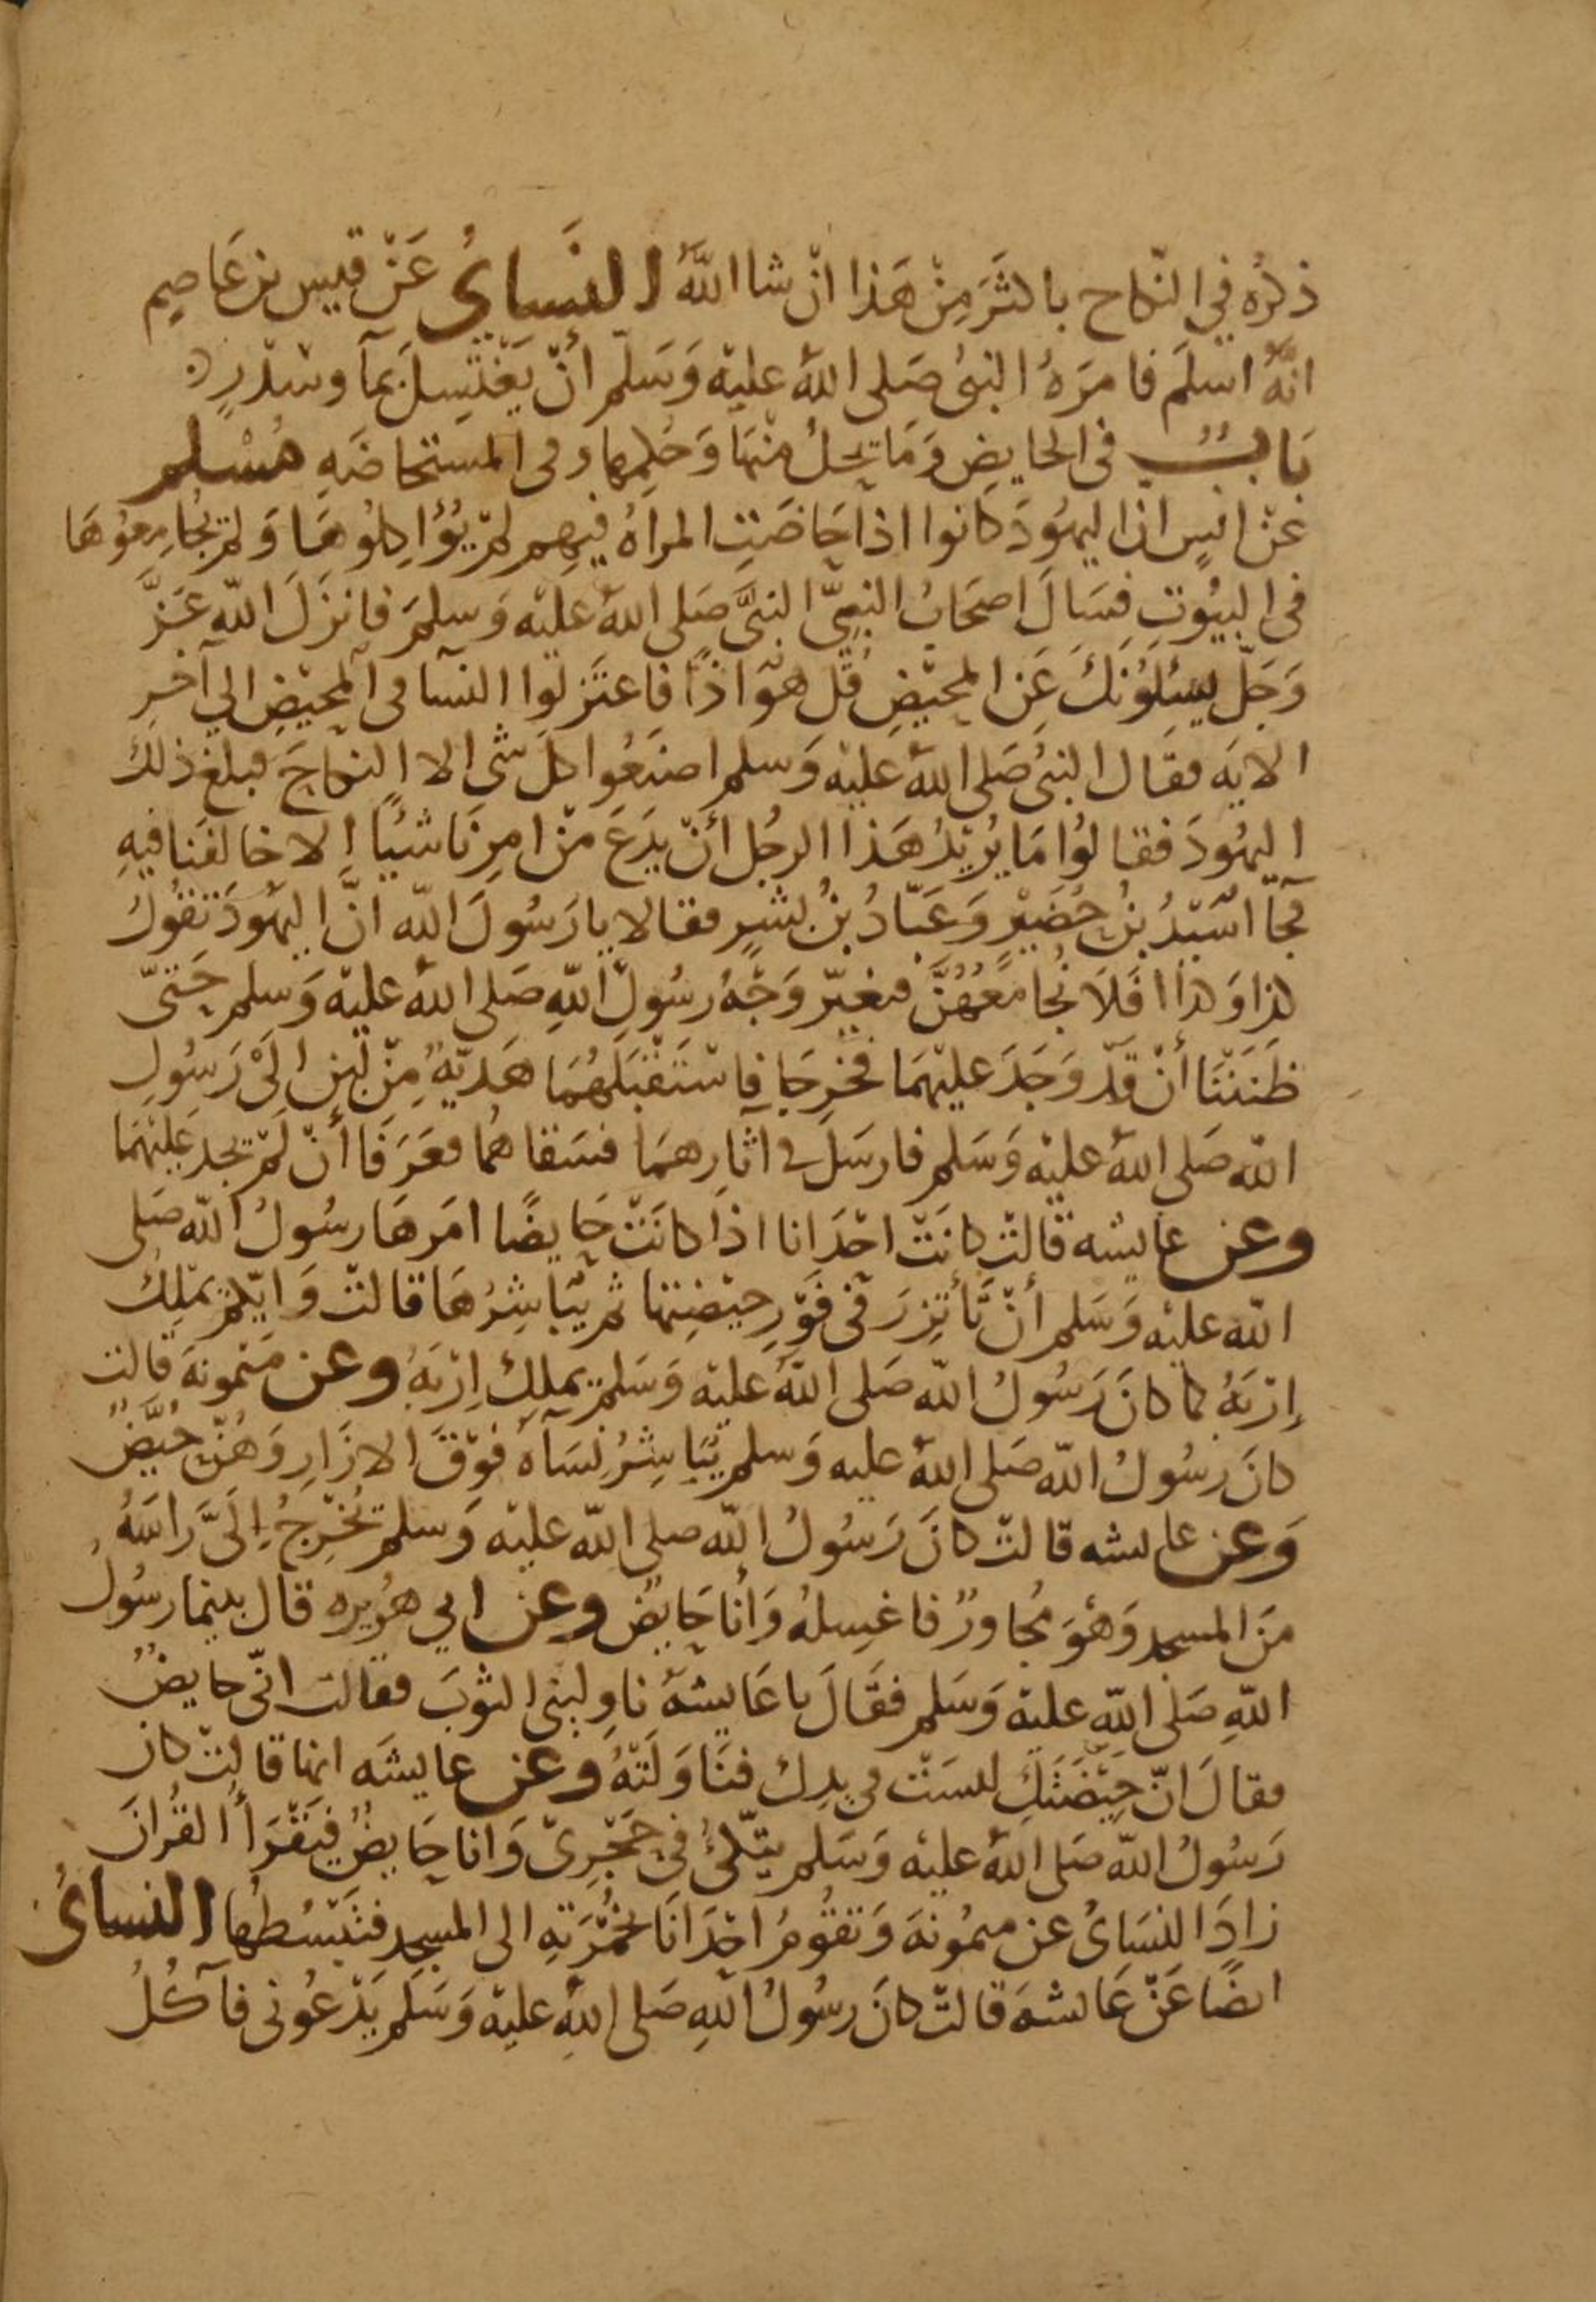 ذكرُه في النّكاح باكثَرَ مِنْ هَذا انْ شا اللهُ النَّسايُ عَنْ قيس بن عَاصِمٍ
انّهُ اسلَم فامَرَهُ النبيُ صَلى اللهُ عليْه وَسَلم أنْ يَغْتَسِلَ بمآ وسْدرٍ
بَابٌ في الحايضِ وَمَا يَحلُ منْهَا وَحُكمِها وفى المستحاضَهِ مُسْلم
عَنْ انسٍ ان اليهُودَ كانوا اذا حَاضَتِ المراهُ فيهم لمْ يُؤَاكِلُوهَا وَلم يُجَامِعُوهَا
فى البيُوتِ فسَالَ اصحَابُ النبِيّ النبيَّ صَلى اللهُ عليْه وَسلمَ فانزَلَ الله عَزَّ
وَجَلّ يسئلُونَكَ عَنِ المحيْضِ قُلْ هوَ اذًا فاعتَزلوا النسآ فى المحيْضِ الي آخرِ
الايَه فقال النبيُ صَلى اللهُ عليْه وَسلم اصنَعُوا كلَ شى الا النكاحَ فبلغ ذلك
اليهُودَ فقالُوا مَا يُريْدُ هَذا الرجُل أنْ يدَعَ منْ امرِنَا شيًا الا خالفَنا فيهِ
فجآ اسَيْدُ بنُ حُضَيْرٍ وَعَبّادُ بنُ بشرٍ فقالا يا رَسُولَ الله انَّ اليهُودَ تقُولُ
كذا وَكذا افَلَا نُجامعُهُنَّ فتغيّر وَجْهُ رسُولِ اللهِ صَلى اللهُ عليْه وَسلم حَتىّ
ظَنَنْنَا أنْ قَدْ وَجَدَ عليْهمَا فخرجَا فاسْتَقْبَلهُمَا هَديّةٌ مِنْ لَبَنٍ الَىْ رَسُولِ
الله صَلى اللهُ عليْه وَسَلم فارسَلَ في اثارِهمَا فسَقاهُما فعَرَفَا أنْ لَمْ يجد عَليْهمَا
وعن عايشه قالتْ كانَتْ احْدَانا اذا كانَتْ حَايضًا امَرهَا رسُولُ الله صَلى
الله عليْه وَسَلم أنْ تَأتَزِرَ في فَوْرِ حيْضِتها ثم يُبَاشِرُهَا قالتْ وَايّكمْ يمْلِكُ
إرْبَهُ كما كانَ رَسُولُ الله صَلى اللهُ عليْه وَسَلم يملكُ إرْبَهُ وعن مَيْمونَة قالت
كانَ رسُولُ الله صَلى اللهُ عليه وَسلم يُبَاشِرُ نسَآهُ فوْقَ الازَارِ وَهُنّ حُيَّضٌ
وَعن عايشه قالتْ كانَ رَسُولُ الله صلى الله عليْه وَسلم يُخْرِجُ إلَىَّ رَاسَهُ
منَ المسجد وَهْوَ مُجاورٌ فاغسِلهُ وَأنا حَايضٌ وعن ابي هُريره قال بينما رسُولُ
اللهِ صَلى اللهِ عليْه وَسَلم فقَالَ يا عَايشهُ ناوِلينى الثوبَ فقالت انّى حايضٌ
فقالَ انّ حيْضَتَكِ ليسَتْ في يدِك فنَاوَلَتْهُ وعن عايشَه انها قالتْ كان
رَسُولُ الله صَلى اللهُ عليْه وَسَلم يتّكئُ في حَجْرِىْ وَانا حَايضٌ فيَقْرَأُ القُرانَ
زادَ النسَائُ عن ميمُونَه وَتقُومُ احْدَانَا بخُمْرَتِهِ الى المسجد فتَبْسُطُها النسائُ
ايضًا عَنْ عَايشهَ قالتْ كانَ رسُولُ اللهِ صَلى اللهِ عليْه وَسَلم يَدْعُونى فآكُلُ